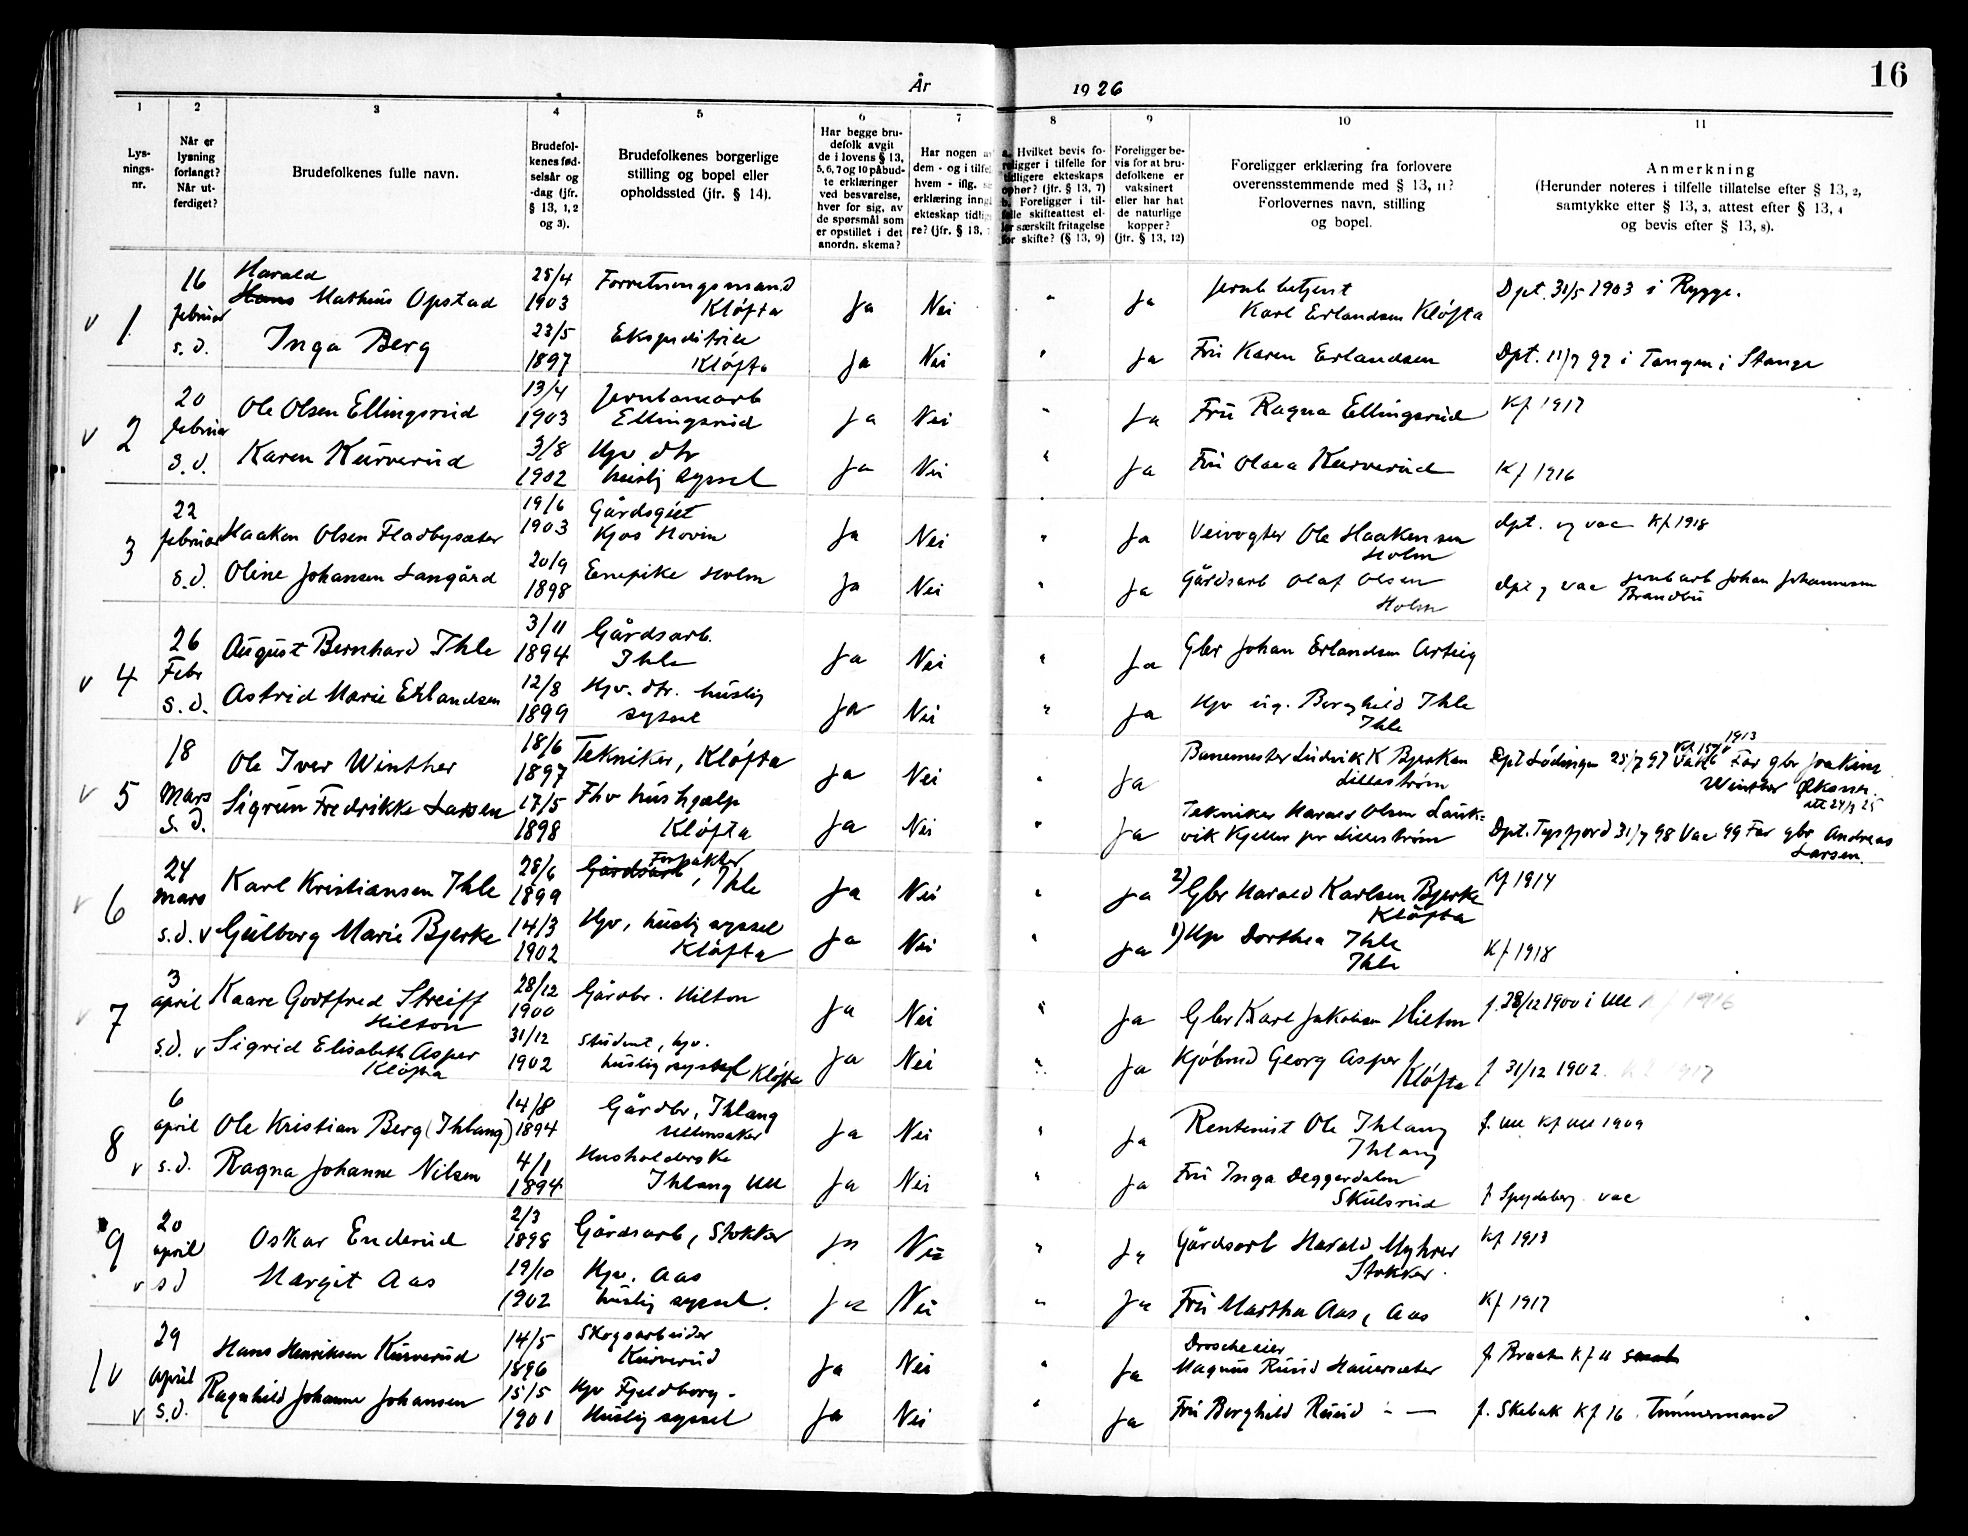 16
År 1926
1 2 3 4 5 6 7 8 9 10 11
Lys-
nings-
nr.
Når er
lysning
forlangt?
Når ut-
ferdiget?
Brudefolkenes fulle navn.
Brudefol-
kenes fød-
selsår og
-dag (jfr.
§ 13, 1, 2
og 3).
Brudefolkenes borgerlige
stilling og bopel eller
opholdssted (jfr. § 14).
Har begge bru-
defolk avgit
de i lovens § 13,
5, 6, 7 og 10 påbud-
te erklæringer
ved besvarelse,
hver for sig, av
de spørsmål som
er opstillet i det
anordn. skema?
Har nogen av
dem - og i tilfel
hvem - iflg.
erklæring inng
ekteskap tidlig
re? (jfr. § 13,
a. Hvilket bevis fo-
religger i tilfelle for
tidligere ekteskaps
ophør? (jfr. § 13, 7)
b. Foreligger i til-
felle skifteattest el-
ler særskilt fritagelse
for skifte? (§ 13, 9)
Foreligger be-
vis for at bru-
defolkene er
vaksinert
eller har hat
de naturlige
kopper?
(jfr. § 13, 12)
Foreligger erklæring fra forlovere
overensstemmende med § 13, 11?
Forlovernes navn, stilling
og bopel.
Anmerkning
(Herunder noteres i tilfelle tillatelse efter § 13, 2,
samtykke efter § 13, 3, attest efter § 13, 4
og bevis efter § 13, 8).
v 1 16 februar Harald Hans Mathius Opstad 25/4 1903 Forretningsmand Kløfta Ja Nei " Ja Jernb betjent Karl Erlandsen Kløfta Dpt. 31/5 1903 i Rygge.
s. d. Inga Berg 23/5 1897 Ekspeditrice Kløfta Ja Nei " Ja Fru Karen Erlandsen Dpt. 11/7 97 i Tangen i Stange
v 2 20 februar Ole Olsen Ellingsrud 13/4 1903 Jernbanearb Ellingsrud Ja Nei " Ja Fru Ragna Ellingsrud Kf 1917
s. d. Karen Kurverud 3/8 1902 Hjv dtr huslig syssel Ja Nei " Ja Fru Olava Kurverud Kf 1916
3 22 februar Haaken Olsen Fladbysæter 19/6 1903 Gårdsgut Kjos Hovin Ja Nei " Ja Veivogter Ole Haakensen Holm dpt. og vac Kf 1918
s. d. Oline Johansen Langård 20/9 1898 Enepike Holm Ja Nei " Ja Gårdsarb Olaf Olsen Holm dpt g vac Jernb arb Johan Johannesen Brandbu
v 4 26 Febr August Bernhard Ihle 3/11 1894 Gårdsarb. Ihle Ja Nei " Ja Gbr Johan Erlandsen Arteig
s. d. Astrid Marie Erlandsen 12/8 1899 Hjv. dtr. huslig syssel Ja Nei " Ja Hjv ug. Borghild Ihle Ihle
v 5 18 Mars Ole Iver Winther 18/6 1897 Tekniker, Kløfta Ja Nei " Ja Banemester Ludvik K Bjerkan Lillestrøm Dpt Lødingen 25/7 97 1913 Far gbr Joakim Winther Øksnes. att 24/3 25
s. d. Sigrun Fredrikke Larsen 17/5 1898 Fhv hushjælp Kløfta Ja Nei " Ja Tekniker Harald Olsen Lauk-
vik Kjeller pr Lillestrøm Dpt. Tysfjord 31/7 98 Vac 99 Far gbr Andreas Larsen.
v 6 24 mars Karl Kristiansen Ihle 28/6 1899 Gårdsarb Forpakter, Ihle Ja Nei " Ja 2) Gbr Harald Karlsen Bjerke Kløfta Kf 1914
s. d. v Gulborg Marie Bjerke 14/3 1902 Hjv, huslig syssel Kløfta Ja Nei " Ja 1) Hjv Dorthea Ihle Ihle Kf 1918
v 7 3 april Kaare Godtfred Streiff Hilton 28/12 1900 Gårdbr. Hilton Ja Nei " Ja Gbr Karl Jakobsen Hilton f. 28/12 1900 i Ull Kf 1916
s. d. v Sigrid Elisabeth Asper Kløfta 31/12 1902 student, hjv. huslig syssel Kløfta Ja Nei " Ja Kjøbmd Georg Asper Kløfta f 31/12 1902. Kf 1917
8 6 april Ole Kristian Berg (Ihlang) 14/8 1894 Gårdbr, Ihlang Ullensaker Ja Nei " Ja Rentenist Ole Ihlang Ihlang f. Ull Kf Ull 1909
v s. d. Ragna Johanne Nilsen 4/1 1894 Husholderske Ihlang Ull Ja Nei " Ja Fru Inga Deggerdalen Skulsrud f Spydeberg vac
9 20 april Oskar Enderud 2/3 1898 Gårdsarb, Stokker Ja Nei " Ja Gårdsarb Harald Myhrer Stokker. Kf 1913
v s d Margit Aas 19/10 1902 Hjv. Aas huslig syssel. Ja Nei " Ja Fru Martha Aas, Aas Kf 1917
10 29 april Hans Henriksen Kurverud 14/5 1896 Skogsarbeider Kurverud Ja Nei " Ja Droscheeier Magnus Ruud Hauersæter f. Braaten Kf 11
v s. d. Ragnhild Johanne Johansen 15/5 1901 Hjv Fjeldborg - Huslig syssel Ja Nei " Ja Fru Borghild Ruud - — f. Skebak Kf 16. Tømmermand